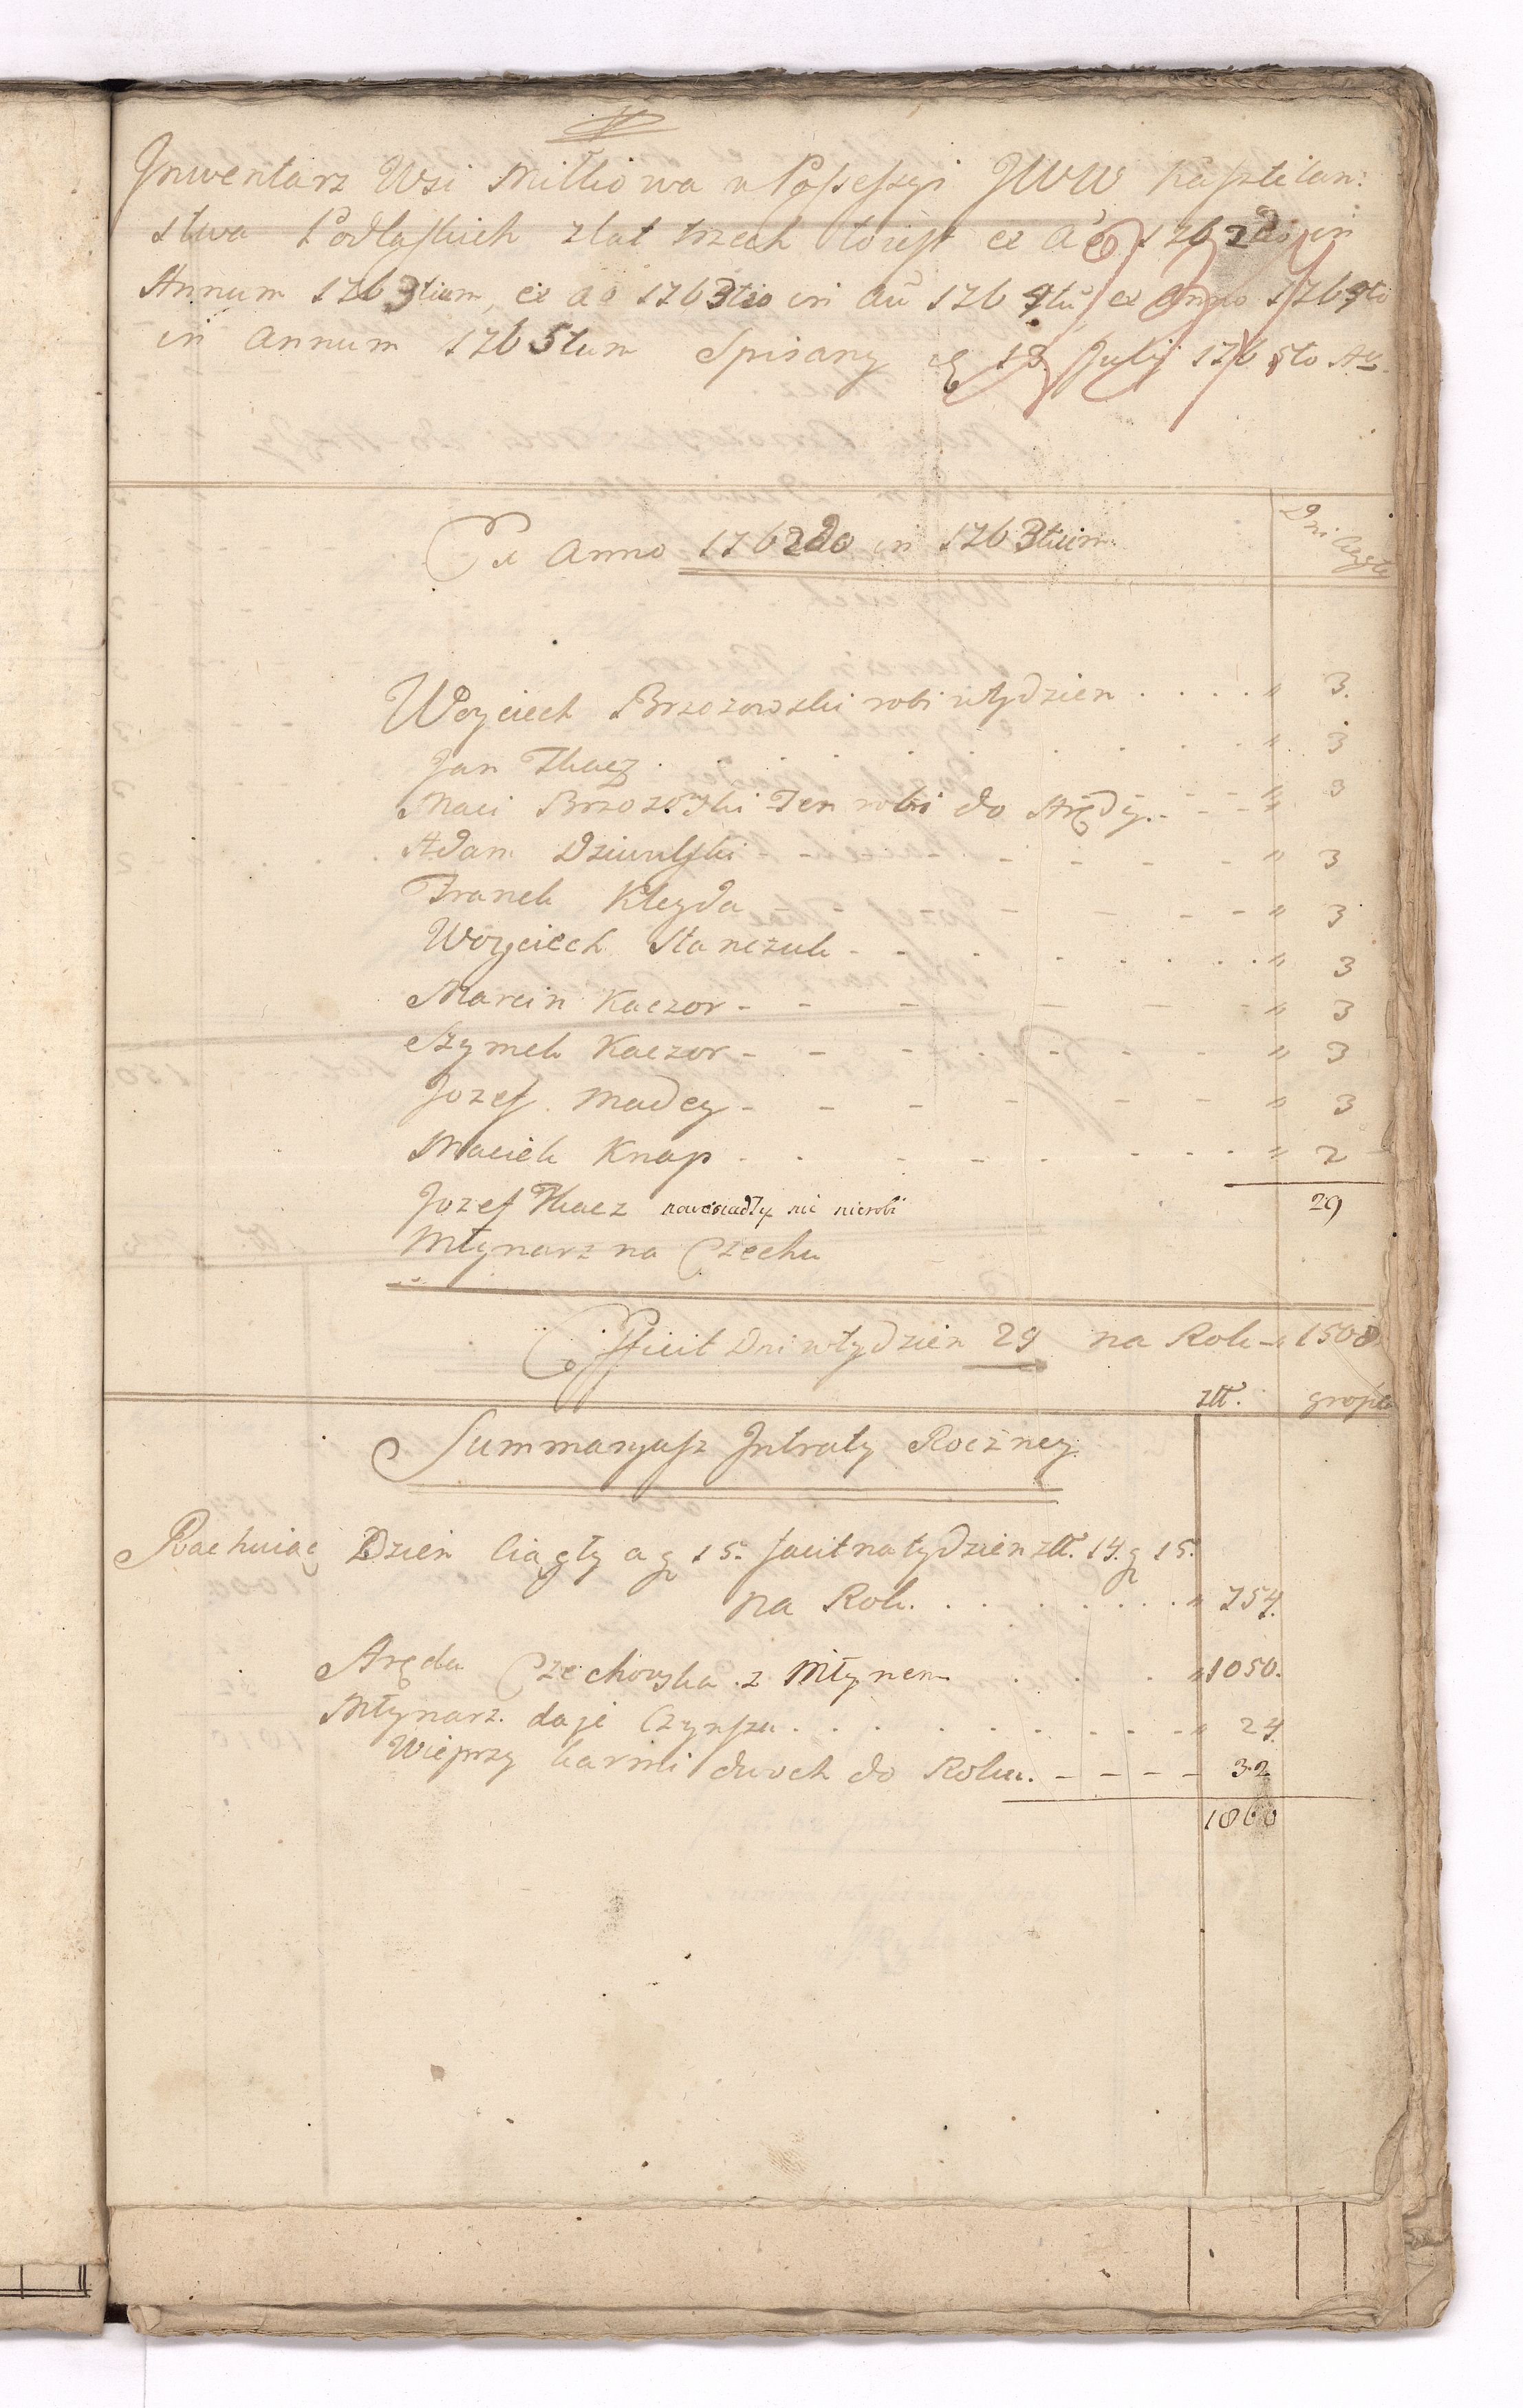 Inwentarz Wsi Milkiowa w Possessyi JWW Kasztelan:
stwa Podlaskich z lat trzech to iest ex Aō 1762do in
Annum 1763tium, ex aō 1763tio in aū 1764tū, ex Anno 1764to
in Annum 1765tum Spisany d 18 Julij 1765to Aō
Ex Anno 1762do in 1763tium
Dni Ciągłe
Woyciech Brzozowski robi wtydzien . . . . " 3.
Jan Tkacz . . . . " 3
Maci Brzozowski Ten robi do Arędy. - - - " 3
Adam Dziurulski - - - - - " 3
Franek Kleyda - - - - - " 3
Woyciech Stanczuk - . . . . . " 3
Marcin Kaczor - - - - - " 3
Szymek Kaczor - - - - - " 3
Jozef Madey - - - - - - " 3
Maciek Knap . . - - - - . . " 2
Jozef Tkacz nic nierobi 29
Młynarz na Czechu
Efficit Dni wtydzien 29 na Rok - " 1508
złł. grosze
Summaryusz Intraty Roczney
Rachuiąc Dzien Ciągły a g 15. facit na tydzien złł. 14. g 15.
na Rok. . . . . . . " 754.
Aręda Czechowska z Młynem . . . " 1050.
Młynarz daje Czynszu . . . . . - - - " 24.
Wieprzy karmi dwoch do Roku. - - - - 32
1860